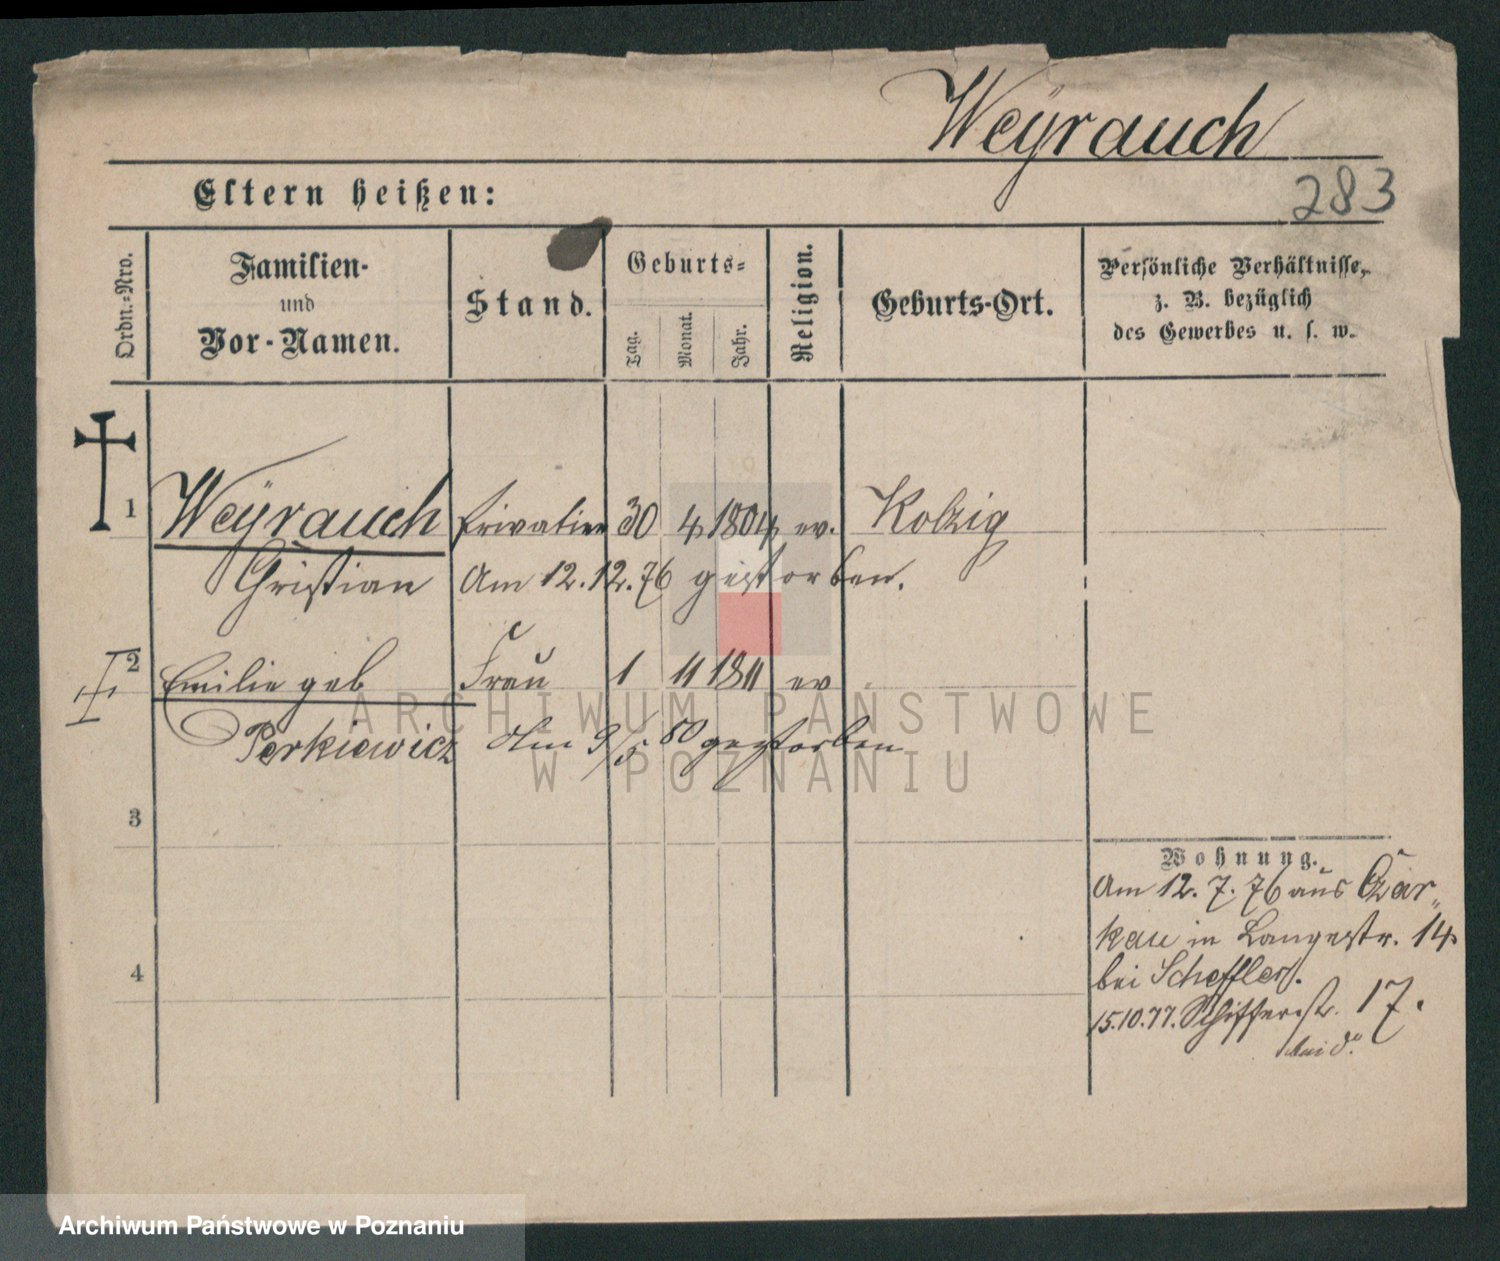 Weÿrauch
Eltern heißen:
283
Ordn.=Nro.
Familien-
und
Vor-Namen.
Stand.
Geburts=
Tag.
Monat.
Jahr.
Religion.
Geburts-Ort.
Persönliche Verhältnisse,
z. B. bezüglich
des Gewerbes u. s. w.
1 Weÿrauch Privatier 30 4 1804 ev. Kolzig
Christian Am 12.12.76 gestorben.
2 Emilie geb Frau 1 11 1811 ev
Perkiewicz Am 9/5 80 gestorben
3
4
Wohnung.
Am 12.7.76 aus Czar„
kau in Langestr. 14
bei Scheffler.
15.10.77. Schifferstr. 17.
bei d.
ARCHIWUM PAŃSTWOWE
W POZNANIU
Archiwum Państwowe w Poznaniu